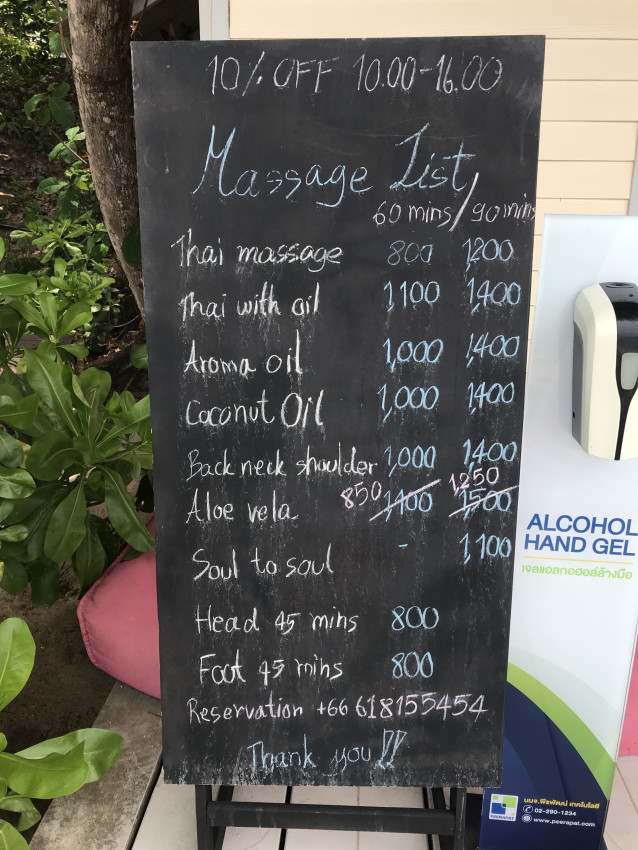 10% OFF 10.00-16.00
Massage List
60 mins/90 mins
Thai massage 800 1,200
Thai with oil 1,100 1,400
Aroma oil 1,000 1,400
Coconut Oil 1,000 1,400
Back neck shoulder 1,000 1,400
850 1,250
Aloe vela 1,100 1,500
Soul to soul - 1,100
Head 45 mins 800
Foot 45 mins 800
Reservation +66 618155454
Thank you!!
ALCOHOL
HAND GEL
เจลแอลกอฮอล์ล้างมือ
PEERAPAT
บมจ.พีรพัฒน์ เทคโนโลยี
02-290-1234
www.peerapat.com